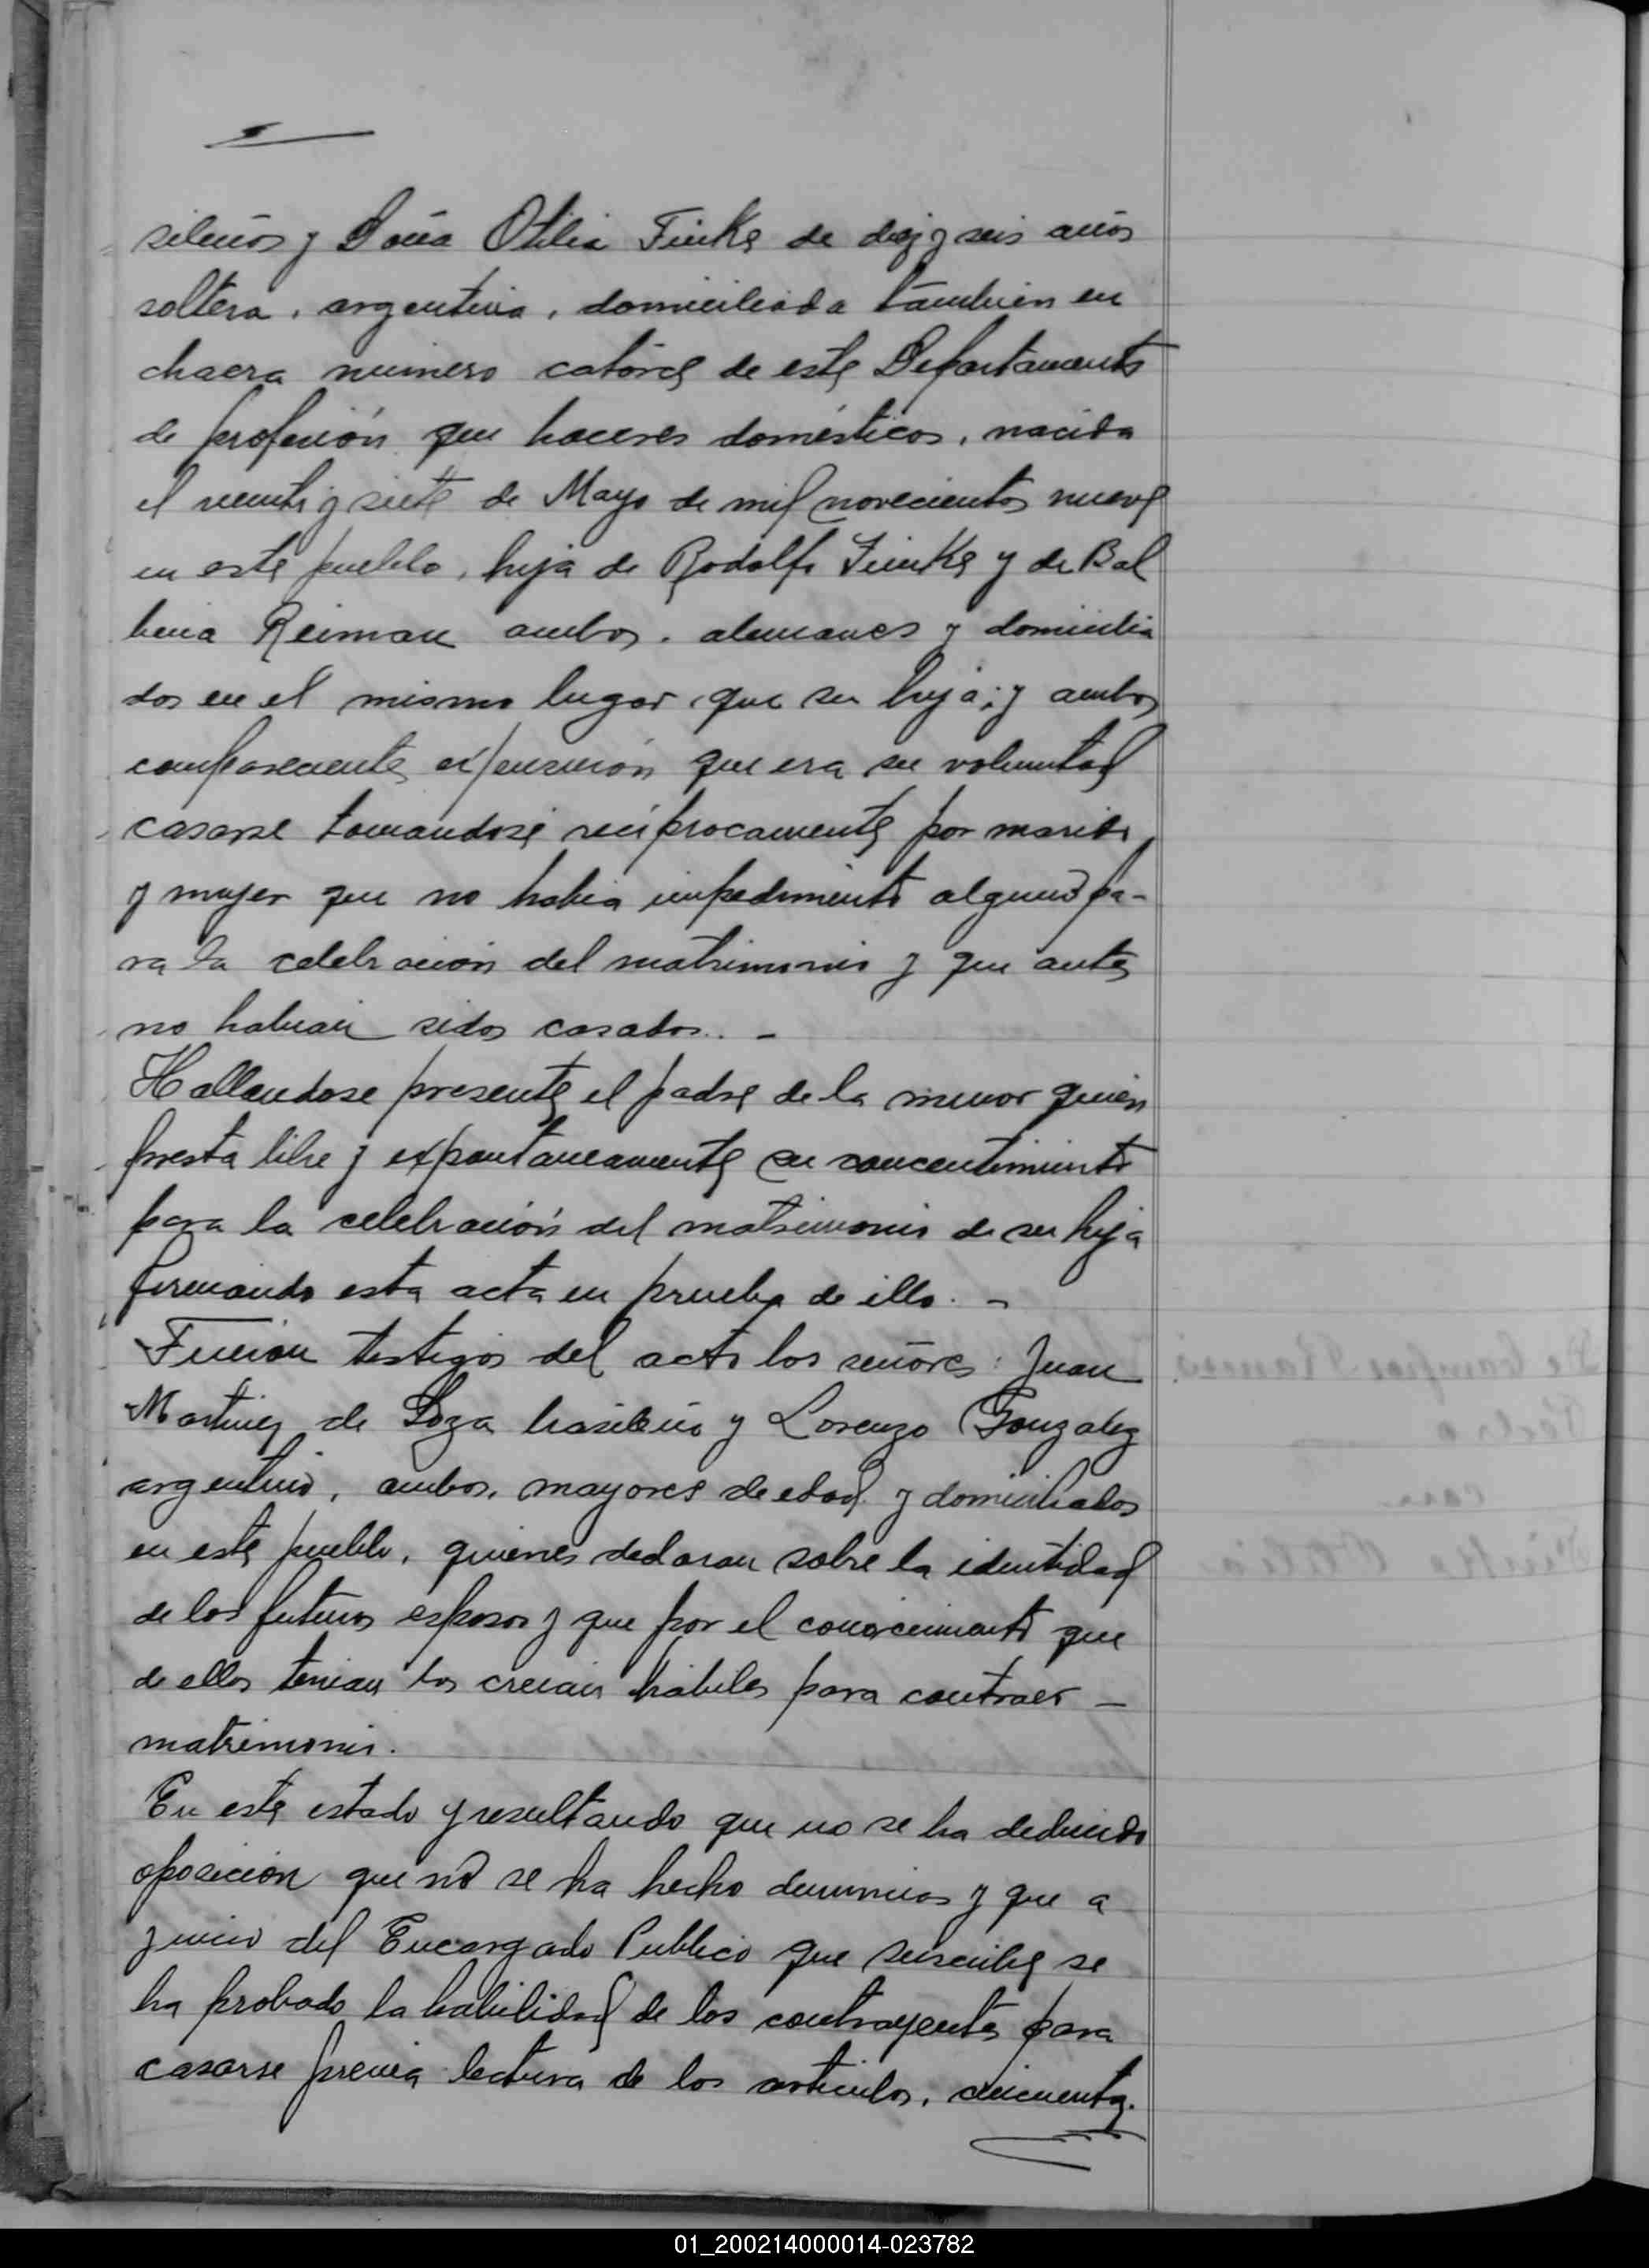 sileños y Doña Otilia Finke de diez y seis años
soltera, argentina, domiciliada tambien en
chacra número catorce de este Departamento
de profesión que haceres domésticos, nacida
el veinte y siete de Mayo de mil novecientos nueve
en este pueblo, hija de Rodolfo Finke y de Bal
bina Reiman ambos, alemanes y domicilia
dos en el mismo lugar que su hija; y ambos
comparecientes expusieron que era su voluntad
casarse tomandose reciprocamente por marido
y mujer que no habia impedimento alguno pa-
ra la celebración del matrimonio y que antes
no habian sidos casados. -
Hallandose presente el padre de la menor quien
presta libre y expontaneamente su concentimiento
para la celebración del matrimonio de su hija
firmando esta acta en prueba de ello. -
Fueron testigos del acto los señores: Juan
Martinez de Loza brasileño y Lorenzo Gonzalez
argentino, ambos, mayores de edad y domiciliados
en este pueblo, quienes declaran sobre la identidad
de los futuros esposos y que por el conocimiento que
de ellos tenian los creian hábiles para contraer -
matrimonio.
En este estado y resultando que no se ha deducido
oposicion que no se ha hecho denuncias y que a
juicio del Encargado Publico que suscribe se
ha probado la habilidad de los contrayentes para
casarse previa lectura de los articulos, cincuenta.
01_200214000014-023782